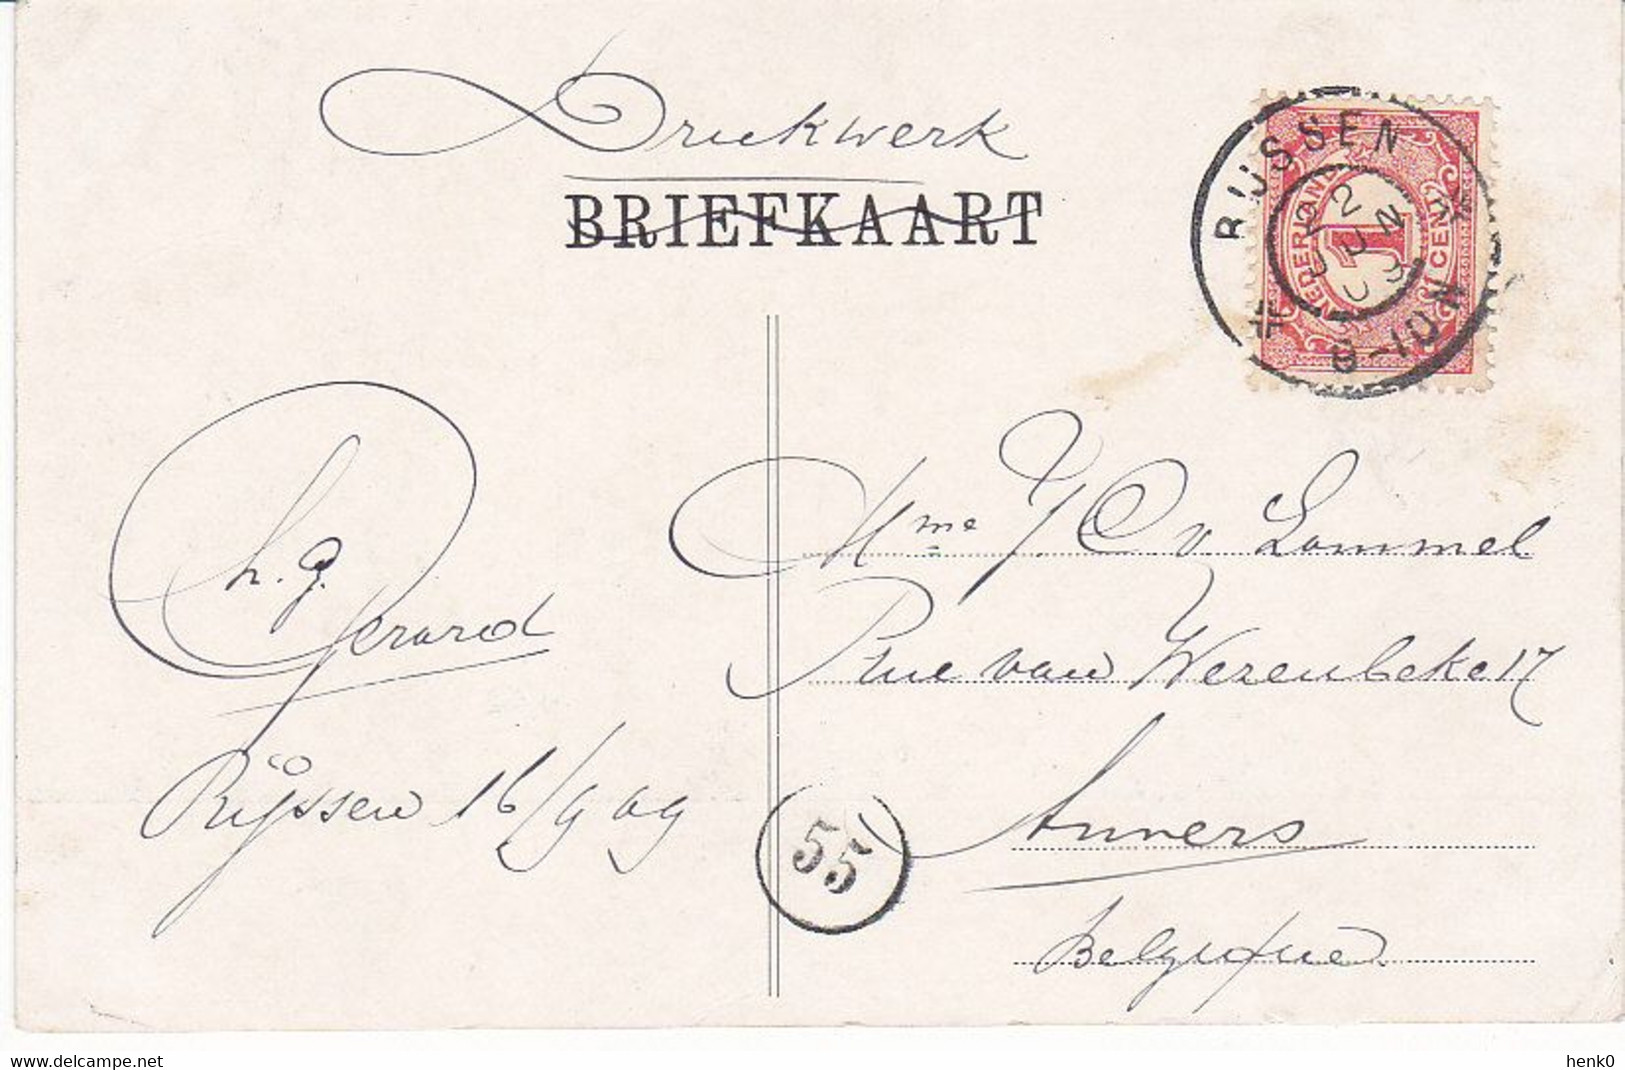 Drukwerk
BRIEFKAART
RIJSSEN
22
JUN
09
8-10N
NEDERLAND
1
1 CENT
h. g.
Gerard
Rijssen 16/9 09
Mme J C v Lommel
Rue van Wezenbeke 17
Anvers
Belgique
55
www.delcampe.net
henk0